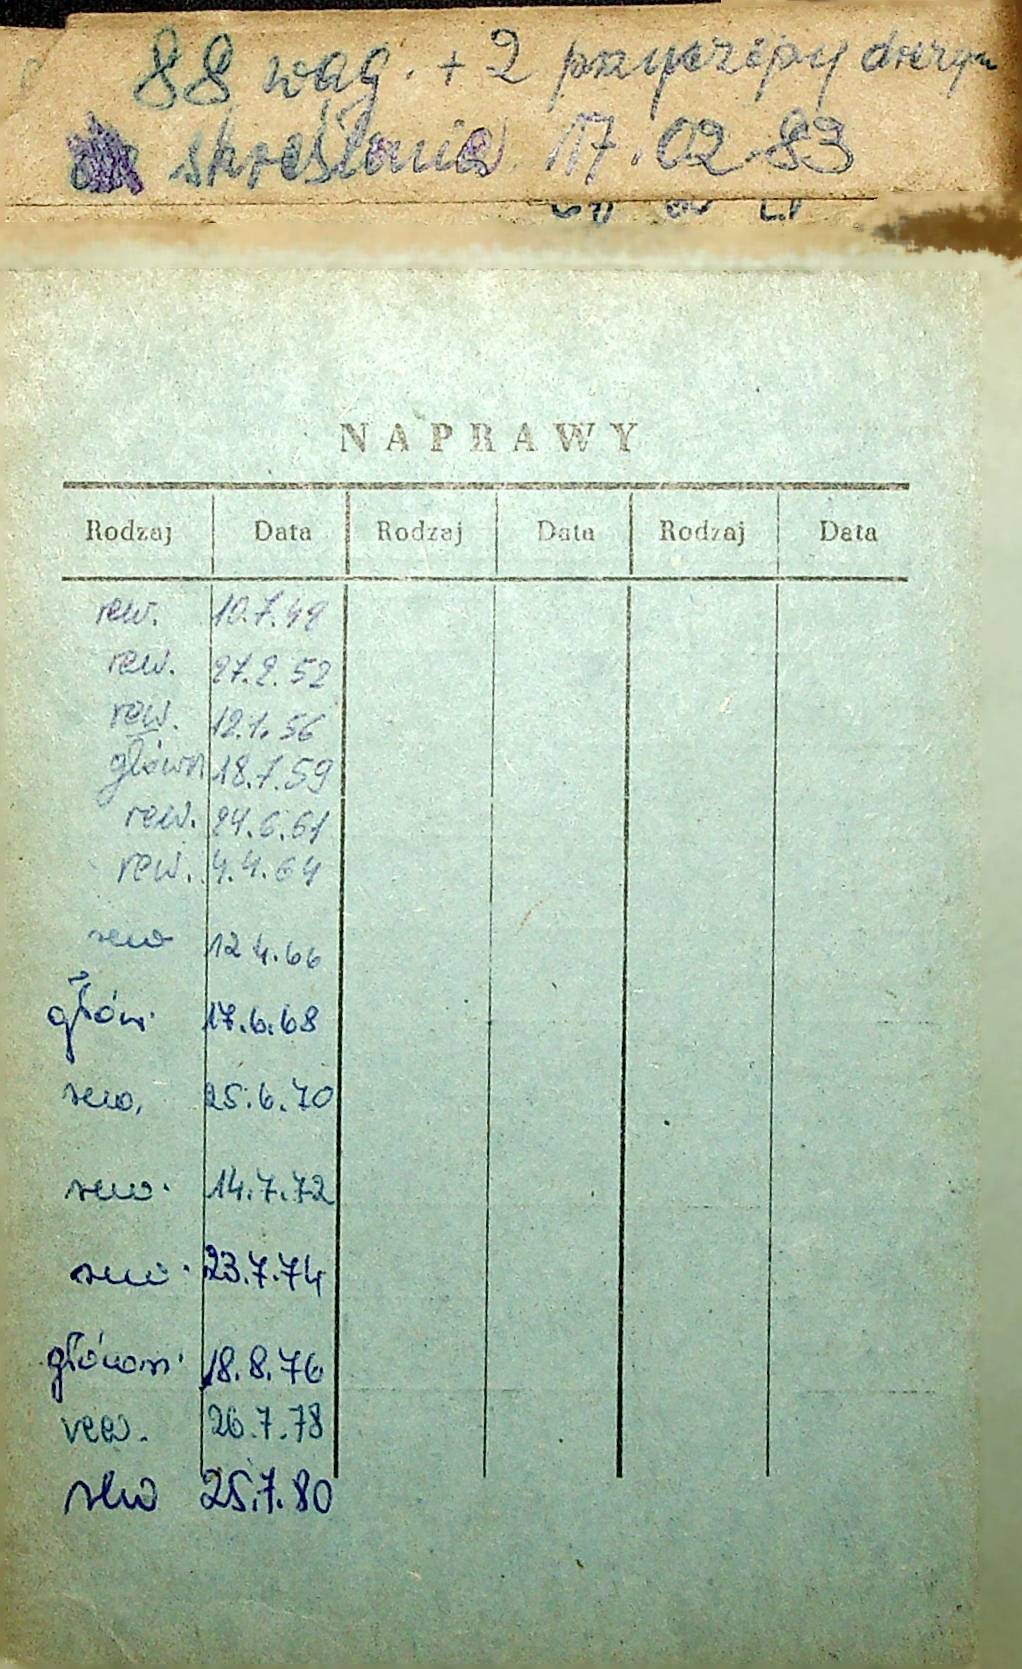 88 wag. + 2 przyczepy drezyn
skreślenia 17.02.83
NAPRAWY
Rodzaj Data Rodzaj Data Rodzaj Data
rew. 10.7.49
rew. 27.2.52
rew. 12.1.56
główn 18.7.59
rew. 24.6.61
rew. 4.4.64
rew 12 4.66
głów. 17.6.68
rew. 25.6.70
rew. 14.7.72
rew. 23.7.74
główn. 18.8.76
rew. 26.7.78
rew 25.7.80